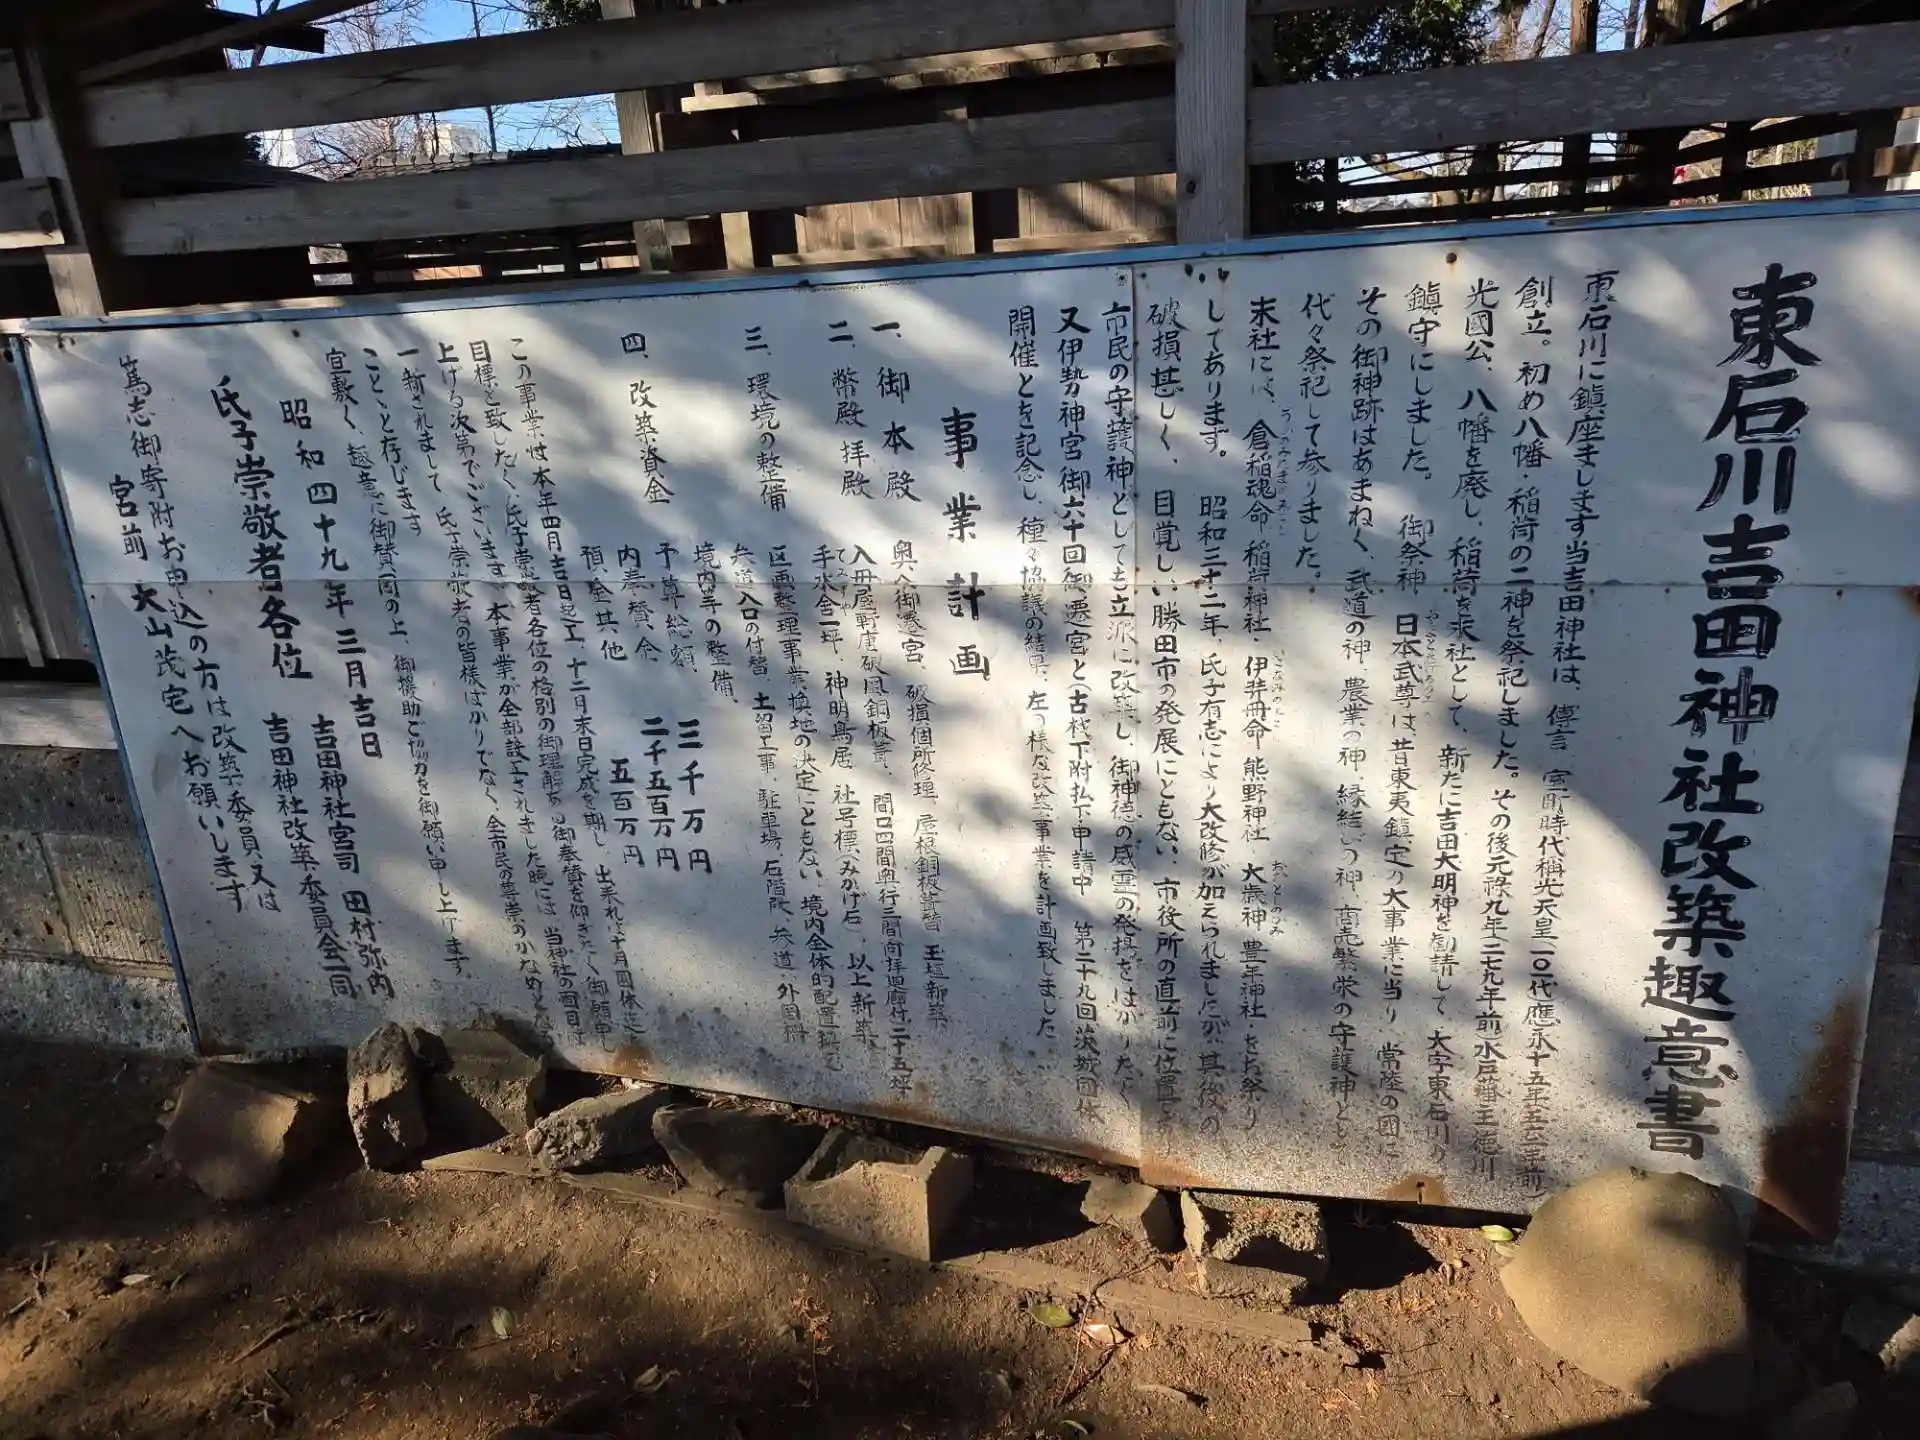 東石川吉田神社改築趣意書
東石川に鎭座まします当吉田神社は、傳言、室町時代稱光天皇一〇一代應永十五年
創立。初め八幡・稲荷の二神を祭祀しました。その後元禄九年(二七九年前)水戸藩主徳川
光國公、八幡を廃し、稲荷を末社として、新たに吉田大明神を勧請して、大字東石川の
鎭守にしました。 御祭神 日本武尊は、昔東夷鎭定の大事業に当り、常陸の國に
その御神跡はあまねく、武道の神、農業の神、縁結びの神、商売繁栄の守護神として
代々祭祀して参りました。
末社には、倉稲魂命 稲荷神社 伊弉冊命 熊野神社 大歳神 豊年神社・をお祭り
してあります。 昭和三十二年、氏子有志により大改修が加えられましたが、其後の
破損甚しく、目覚しい勝田市の発展にともない、市役所の直前に位置
市民の守護神としても立派に改築し、御神徳の威霊の発揚をはかりたく
又伊勢神宮御六十回御遷宮と古材下附払下申請中 第二十九回茨城国体
開催とを記念し、種々協議の結果、左の様な改築事業を計画致しました
事業計画
一、御本殿 奥へ御遷宮、破損個所修理、屋根銅板葺替 玉垣新築
二、幣殿拝殿 入母屋軒唐破風銅板葺、間口四間奥行三間向拝廻廊付二十五坪
手水舎一坪、神明鳥居 社号標(みかげ石)以上新築
三、環境の整備 区画整理事業換地の決定にともない、境内全体的配置換え
参道入口の付替、土留工事、駐車場、石階段、参道、外囲柵
境内等の整備、
四、改築資金 予算総額、 三千万円
内奉賛金 二千五百万円
預金其他 五百万円
この事業は本年四月吉日起工、十二月末日完成を期し、出来れば十月国体迄
目標と致したく、氏子崇敬者各位の格別の御理解ある御奉賛を仰ぎたく御願申し
上げる次第でございます。本事業が全部設立されました暁には、当神社の面目は
一新されまして、氏子崇敬者の皆様ばかりでなく、全市民の尊崇のかなめと
こと、と存じます
宜敷く、趣意に御賛同の上、御援助ご協力を御願い申し上げます。
昭和四十九年三月吉日
吉田神社宮司 田村弥内
吉田神社改築委員会一同
氏子崇敬者各位
篤志御寄附お申込の方は改築委員、又は
宮前 大山茂宅へお願いします